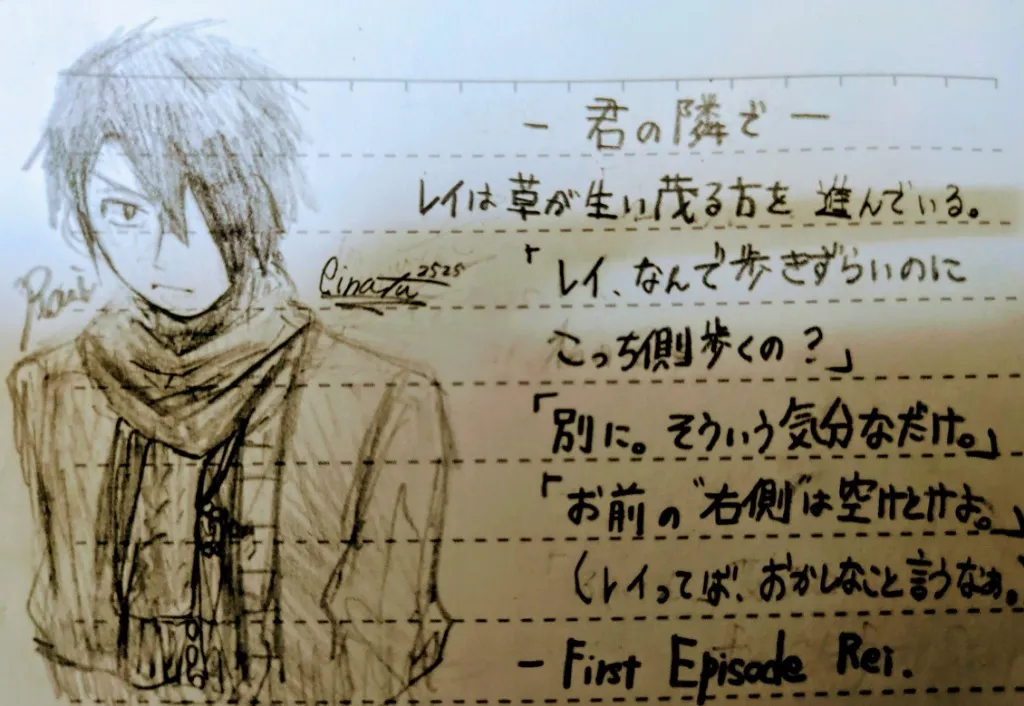 - 君の隣で -
レイは草が生い茂る方を進んでいる。
「レイ、なんで歩きずらいのに
こっち側歩くの?」
「別に。そういう気分なだけ。」
「お前の"右側"は空けとけよ。」
(レイってば、おかしなこと言うなぁ。)
- First Episode Rei.
Cinata 2525